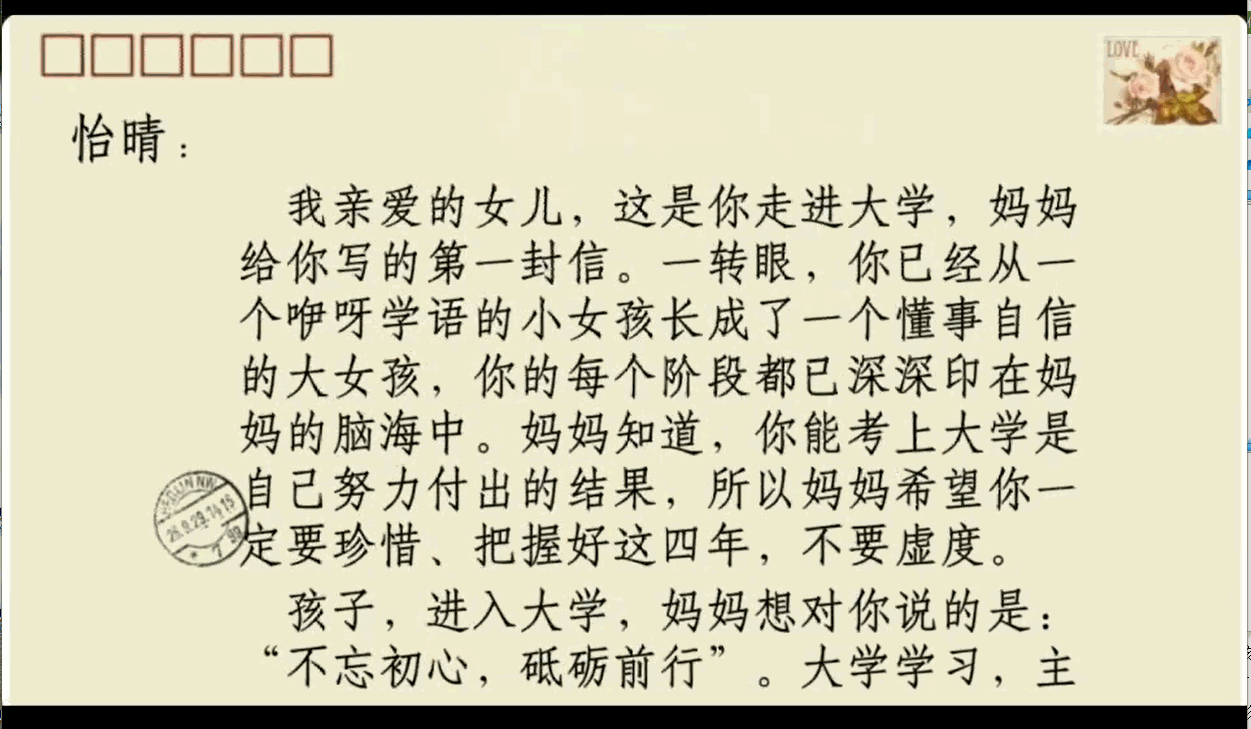 LOVE
怡晴：
我亲爱的女儿，这是你走进大学，妈妈
给你写的第一封信。一转眼，你已经从一
个咿呀学语的小女孩长成了一个懂事自信
的大女孩，你的每个阶段都已深深印在妈
妈的脑海中。妈妈知道，你能考上大学是
自己努力付出的结果，所以妈妈希望你一
定要珍惜、把握好这四年，不要虚度。
孩子，进入大学，妈妈想对你说的是：
“不忘初心，砥砺前行”。大学学习，主